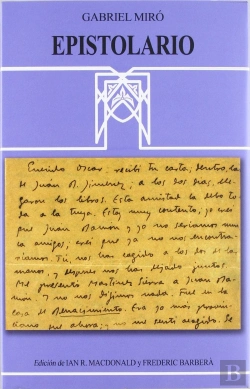 GABRIEL MIRÓ
EPISTOLARIO
Querido Oscar: recibí tu carta; dentro, la
de Juan R. Jimenez; a los dos dias, lle-
garon los libros. Esta amistad la debo to-
da a la tuya. Estoy muy contento; yo creí
que Juan Ramon y yo no seriamos nun-
ca amigos; creí que ya no nos encontra-
riamos. Tú, nos has cogido a los dos de las
manos, y despues nos has dejado juntos.
Me presentó Martinez Sierra a Juan Ra-
mon y no nos dijimos nada. Fué en la
casa de Renacimiento. Era yo más provin-
ciano que ahora; y no me sentí acogido. Se
Edición de IAN R. MACDONALD y FREDERIC BARBERÀ
B